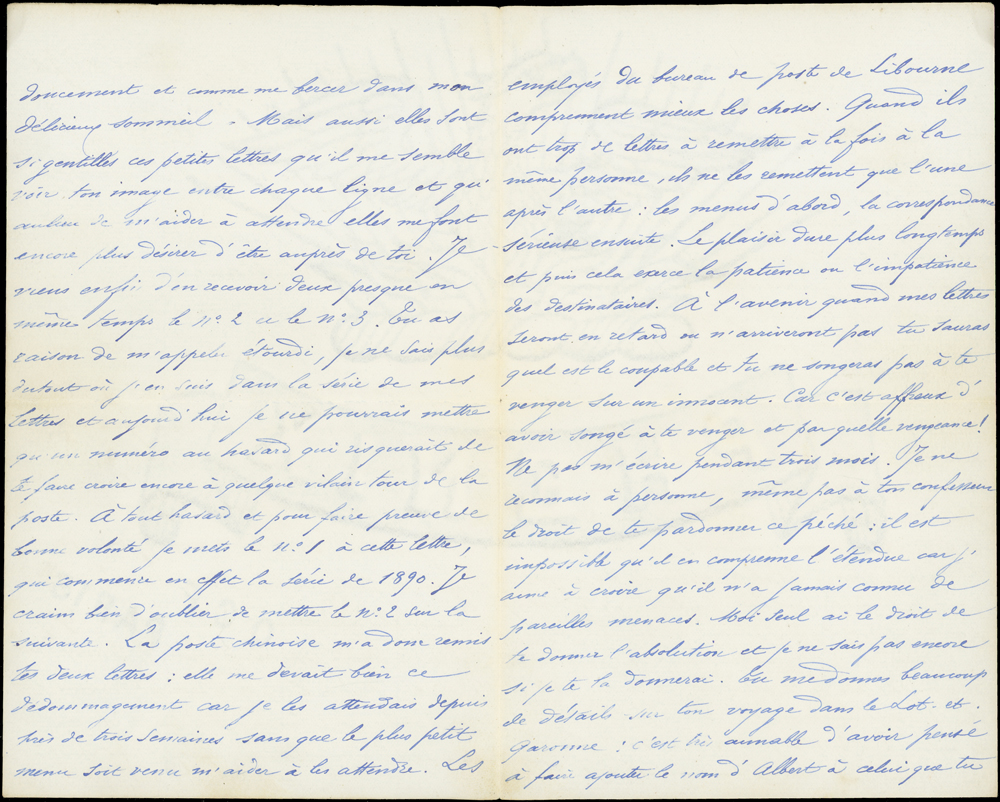 doucement et comme me bercer dans mon
délicieux sommeil. Mais aussi elles sont
si gentilles ces petites lettres qu'il me semble
voir ton image entre chaque ligne et qu'
aulieu de m'aider à attendre elles me font
encore plus désirer d'être auprès de toi. Je
viens enfin d'en recevoir deux presque en
même temps le No. 2 et le No. 3. Tu as
raison de m'appeler étourdi, je ne sais plus
dutout où j'en suis dans la série de mes
lettres et aujourd'hui je ne pourrais mettre
qu'un numéro au hasard qui risquerait de
te faire croire encore à quelque vilain tour de la
poste. À tout hasard et pour faire preuve de
bonne volonté je mets le No. 1 à cette lettre,
qui commence en effet la série de 1890. Je
crains bien d'oublier de mettre le No. 2 sur la
suivante. La poste chinoise m'a donc remis
tes deux lettres : elle me devait bien ce
dédommagement car je les attendais depuis
près de trois semaines sans que le plus petit
menu soit venu m'aider à les attendre. Les
employés du bureau de poste de Libourne
comprennent mieux les choses. Quand ils
ont trop de lettres à remettre à la fois à la
même personne, ils ne les remettent que l'une
après l'autre : les menus d'abord, la correspondance
sérieuse ensuite. Le plaisir dure plus longtemps
et puis cela exerce la patience ou l'impatience
des destinataires. À l'avenir quand mes lettres
seront en retard ou n'arriveront pas tu sauras
quel est le coupable et tu ne songeras pas à te
venger sur un innocent. Car c'est affreux d'
avoir songé à te venger et par quelle vengeance!
Ne pas m'écrire pendant trois mois. Je ne
reconnais à personne, même pas à ton confesseur
le droit de te pardonner ce péché : il est
impossible qu'il en comprenne l'étendue car j'
aime à croire qu'il n'a jamais connu de
pareilles menaces. Moi seul ai le droit de
te donner l'absolution et je ne sais pas encore
si je te la donnerai. Tu me donnes beaucoup
de détails sur ton voyage dans le Lot-et-
Garonne : c'est très aimable d'avoir pensé
à faire ajouter le nom d'Albert à celui que tu